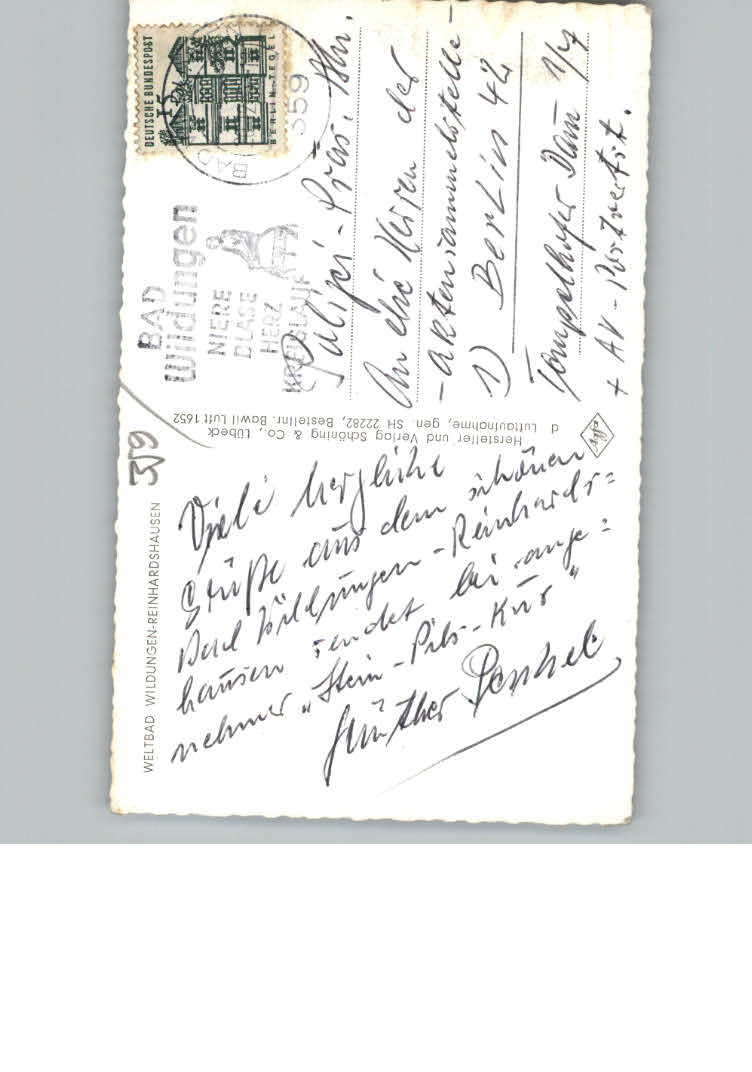 WELTBAD WILDUNGEN-REINHARDSHAUSEN
359
Viele herzliche
Grüße aus dem schönen
Bad Wildungen-Reinhards=
hausen sendet bei ange=
nehmer „Stein-Pils-Kur"
Günther
Hersteller und Verlag Schöning & Co., Lübeck
d Luftaufnahme, gen. SH 22282, Bestellnr. Bawil Luft 1652
BAD
wildungen
NIERE
BLASE
HERZ
KREISLAUF
DEUTSCHE BUNDESPOST
15
BERLIN-TEGEL
BAD
359
An die Herren der
-aktensammelstelle-
1) Berlin 42
Tempelhofer Dam 1/7